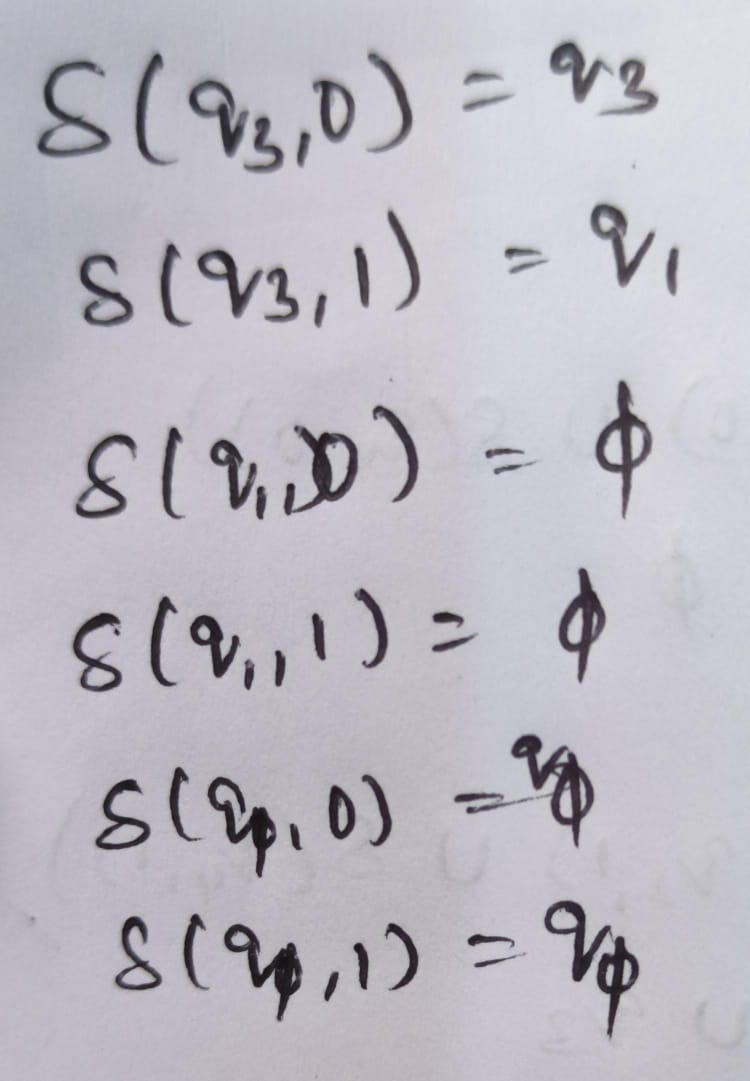 δ(q₃,0) = q₃
δ(q₃,1) = q₁
δ(q₁,0) = ϕ
δ(q₁,1) = ϕ
δ(qϕ,0) = qϕ
δ(qϕ,1) = qϕ